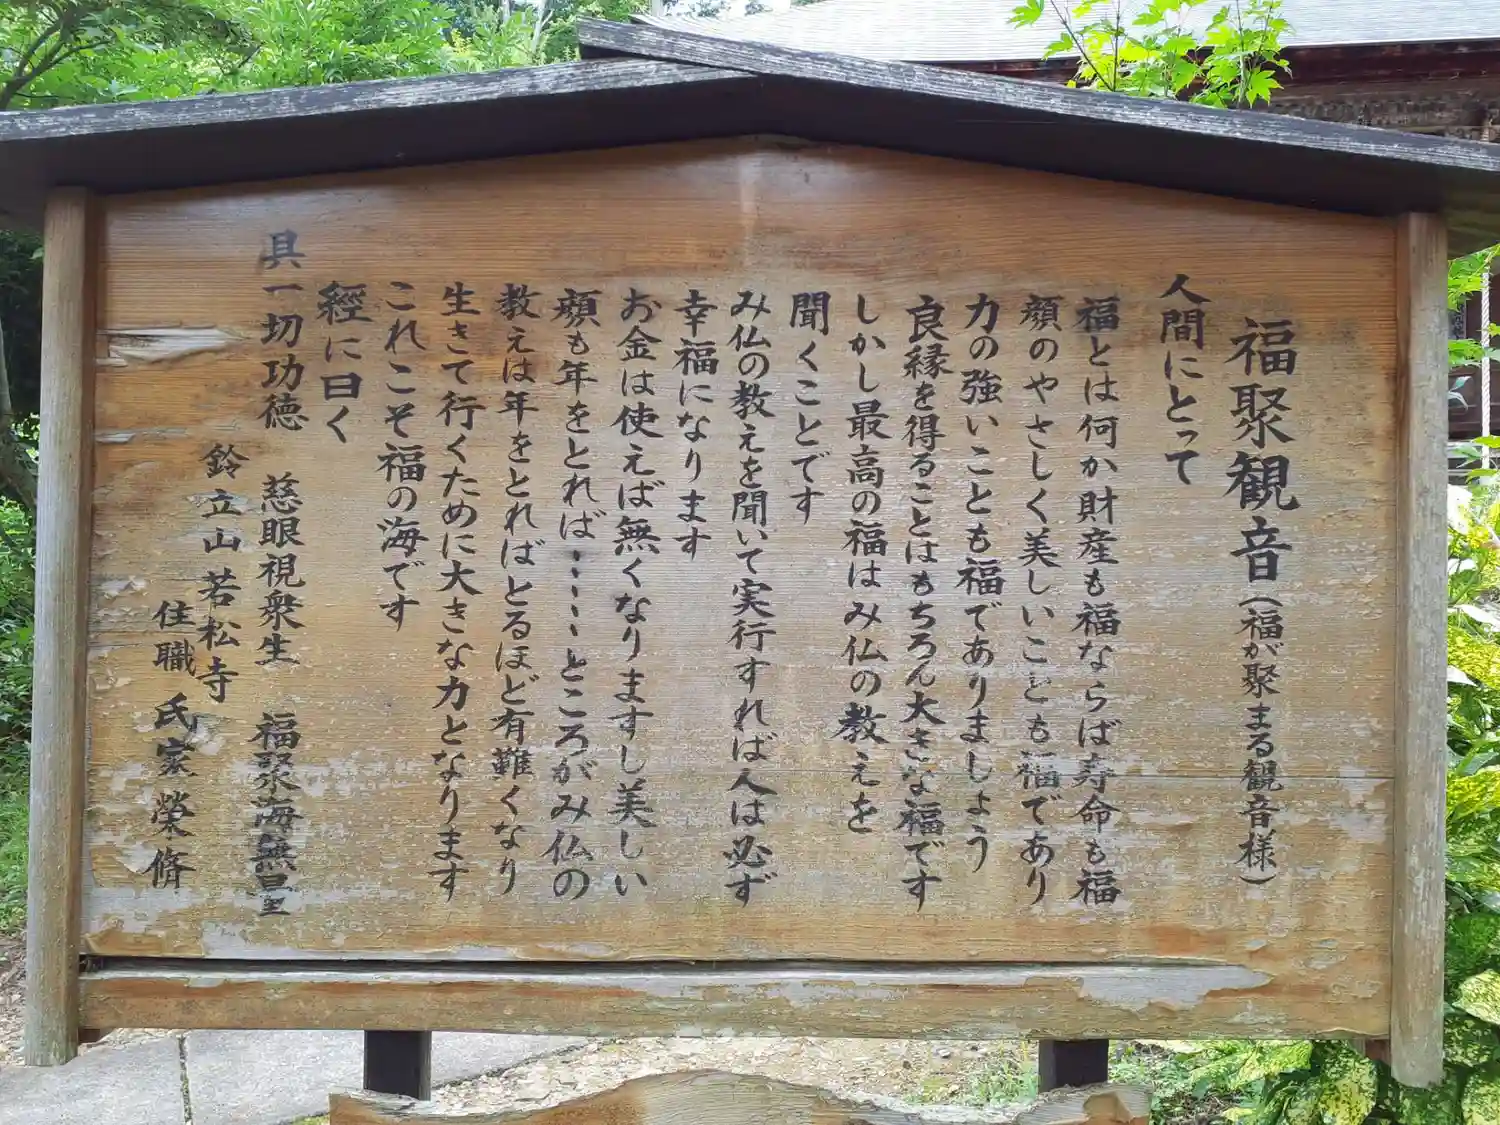 福聚観音(福が聚まる観音様)
人間にとって
福とは何か財産も福ならば寿命も福
顔のやさしく美しいことも福であり
力の強いことも福でありましょう
良縁を得ることはもちろん大きな福です
しかし最高の福はみ仏の教えを
聞くことです
み仏の教えを聞いて実行すれば人は必ず
幸福になります
お金は使えば無くなりますし美しい
顔も年をとれば……ところがみ仏の
教えは年をとればとるほど有難くなり
生きて行くために大きな力となります
これこそ福の海です
經に曰く
具一切功徳 慈眼視衆生 福聚海無量
鈴立山 若松寺
住職 氏家榮脩